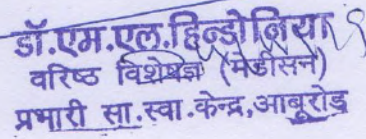 डॉ.एम.एल.हिन्डोनिया
वरिष्ठ विशेषज्ञ (मेडीसन)
प्रभारी सा.स्वा.केन्द्र,आबूरोड